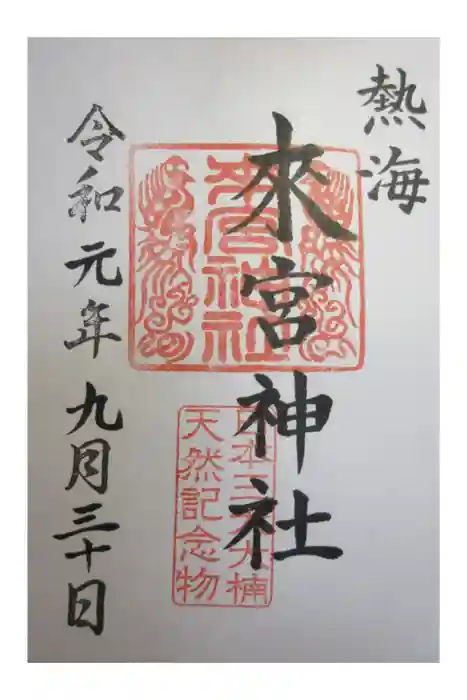 熱海
來宮神社
來宮神社
日本三大大楠
天然記念物
令和元年九月三十日